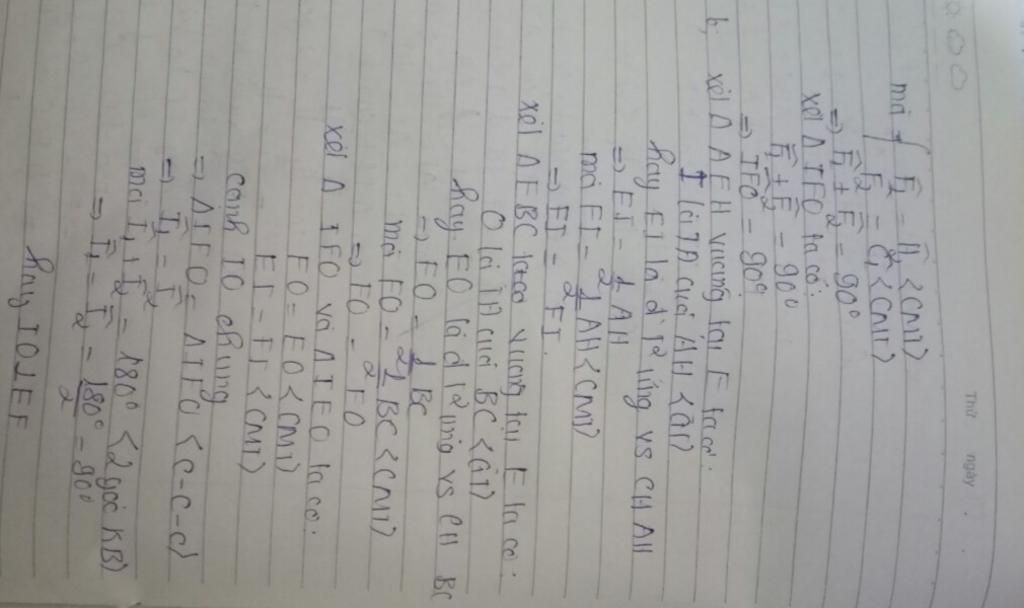 Thứ ngày
mà { F̂₂ = Â₁ <CMT>
F̂ = Ĉ₁ <CMT>
=> F̂₁ + F̂₂ = 90°
xét Δ IFO ta có:
F̂₁ + F̂₂ = 90°
=> IFO = 90°
b, xét Δ AEH vuông tại E ta có:
I là TĐ của AH <GT>
hay EI là đ' t² ứng vs CH AH
=> EI = 1/2 AH
mà FI = 1/2 AH <CMT>
=> EI = FI.
xét Δ EBC ta có vuông tại E ta có:
O là TĐ của BC <GT>
hay EO là đ t² ứng vs CH BC
=> EO = 1/2 BC
mà FO = 1/2 BC <CMT>
=> EO = FO
xét Δ IFO và Δ IEO ta có:
FO = EO <CMT>
EI = FI <CMT>
cạnh IO chung
=> ΔIFO = ΔIEO <c-c-c>
=> Î₁ = Î₂
mà Î₁ + Î₂ = 180° <2 góc KB>
=> Î₁ = Î₂ = 180°/2 = 90°
hay IO⊥EF